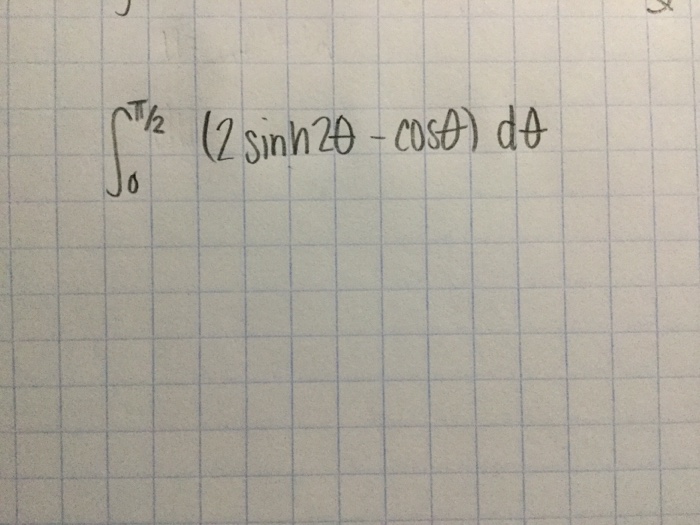 ∫₀^π/2 (2 sinh2θ - cosθ) dθ